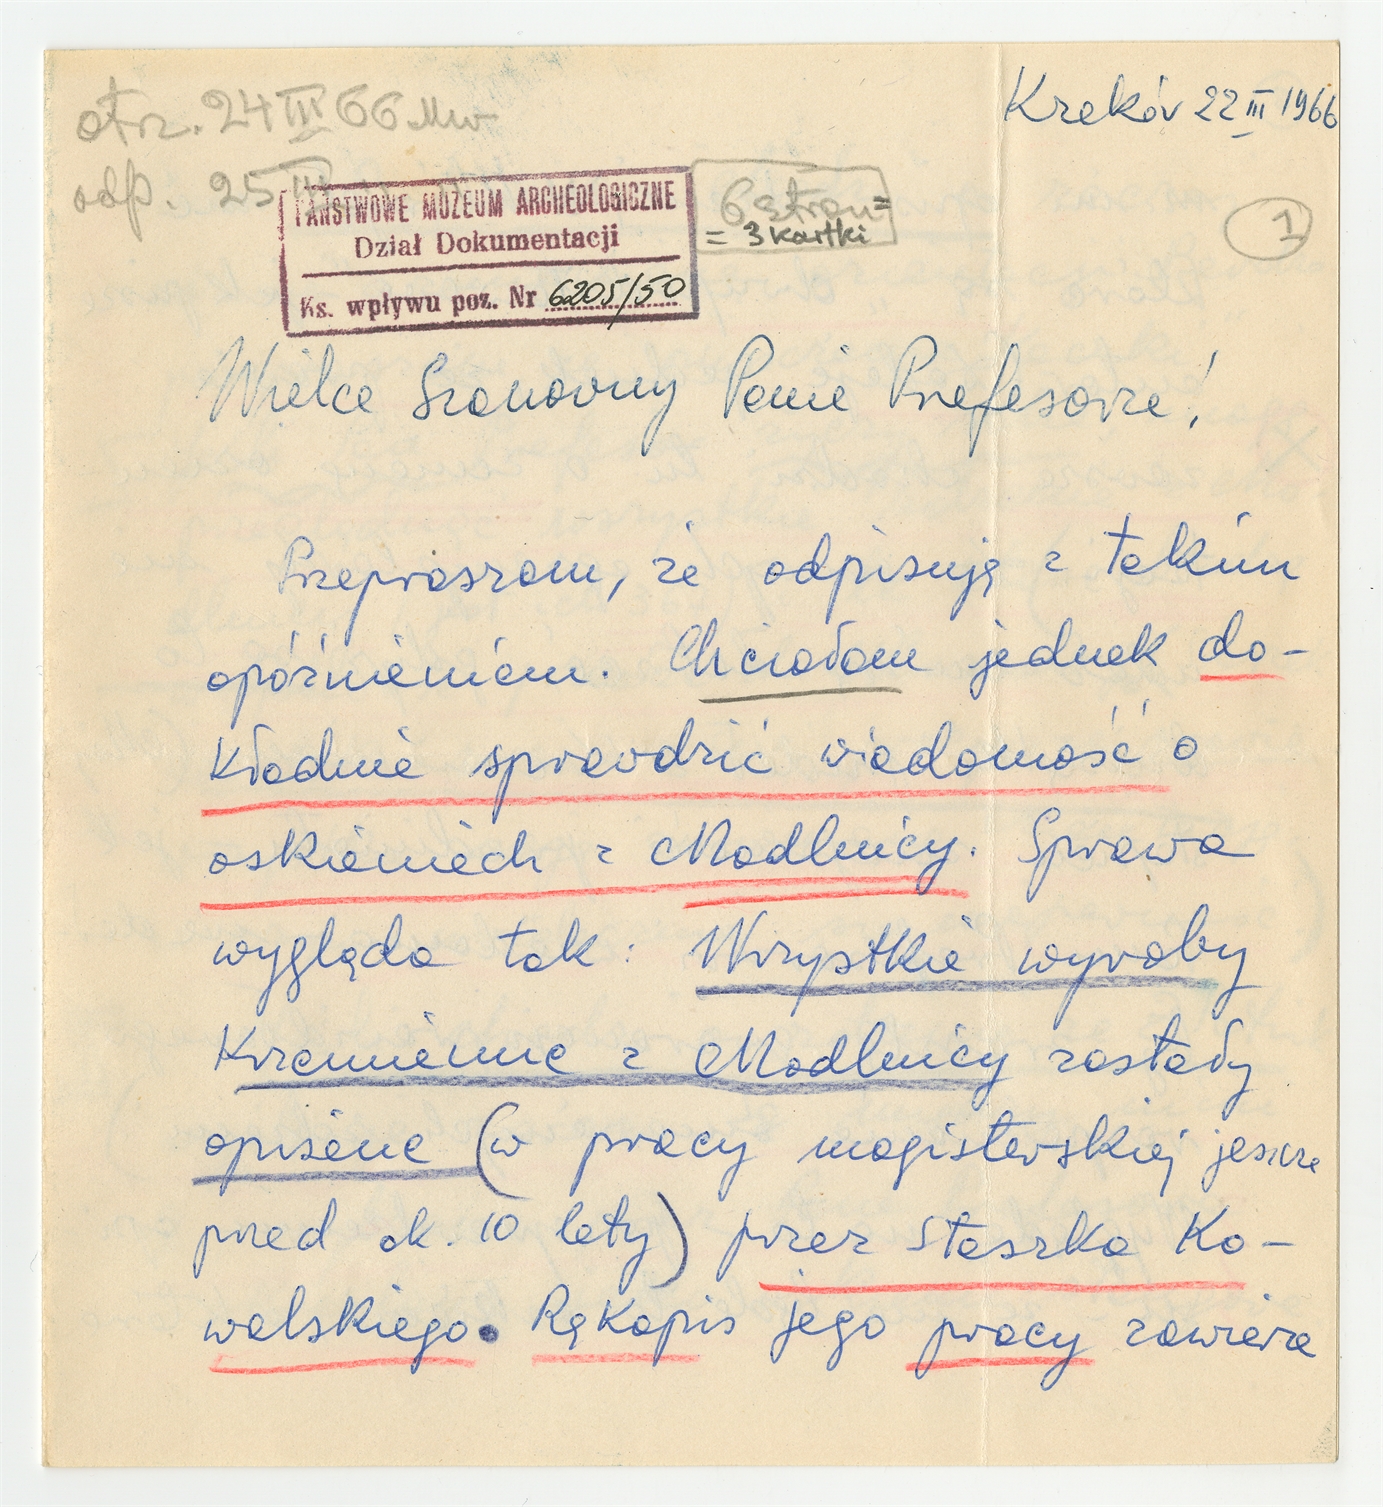 otrz. 24 III 66 Mw
Kraków 22 III 1966
odp. 25 III
PAŃSTWOWE MUZEUM ARCHEOLOGICZNE
Dział Dokumentacji
Ks. wpływu poz. Nr 6205/50
6 stron =
= 3 kartki
1
Wielce Szanowny Panie Profesorze!
Przepraszam, że odpisuję z takim
opóźnieniem. Chciałam jednak do-
kładnie sprawdzić wiadomość o
oskieniech z Modlnicy. Sprawa
wygląda tak: Wszystkie wyroby
krzemienne z Modlnicy zostały
opisane (w pracy magisterskiej jeszcze
przed ok. 10 laty) przez Staszka Ko-
walskiego. Rękopis jego pracy zawiera